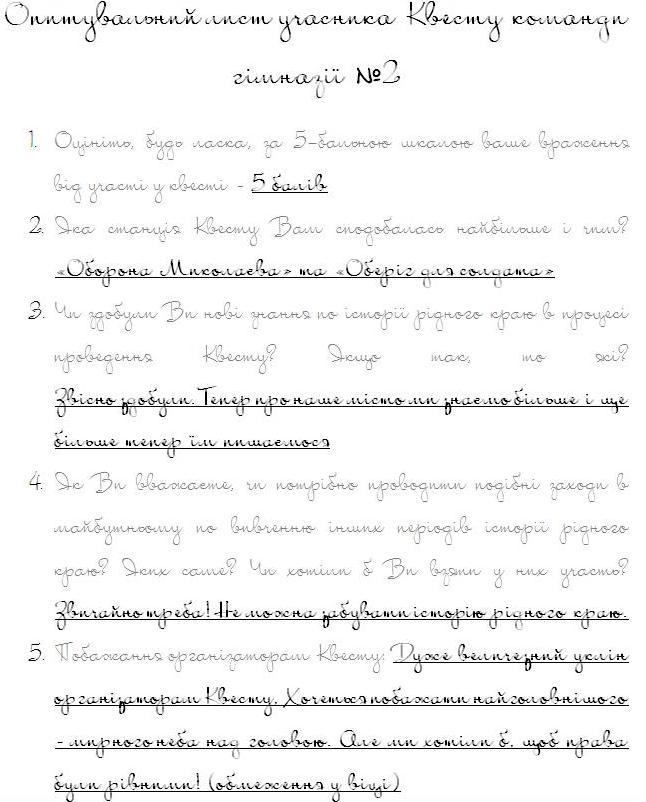 Опитувальний лист учасника Квесту команди
гімназії №2
1. Оцініть, будь ласка, за 5-бальною шкалою ваше враження
від участі у квесті - 5 балів
2. Яка станція Квесту Вам сподобалась найбільше і чим?
«Оборона Миколаєва» та «Оберіг для солдата»
3. Чи здобули Ви нові знання по історії рідного краю в процесі
проведення Квесту? Якщо так, то які?
Звісно здобули. Тепер про наше місто ми знаємо більше і ще
більше тепер їм пишаємося
4. Як Ви вважаєте, чи потрібно проводити подібні заходи в
майбутньому по вивченню інших періодів історії рідного
краю? Яких саме? Чи хотіли б Ви взяти у них участь?
Звичайно треба! Не можна забувати історію рідного краю.
5. Побажання організаторам Квесту: Дуже величезний уклін
організаторам Квесту. Хочеться побажати найголовнішого
- мирного неба над головою. Але ми хотіли б, щоб права
були рівними! (обмеження у віці)